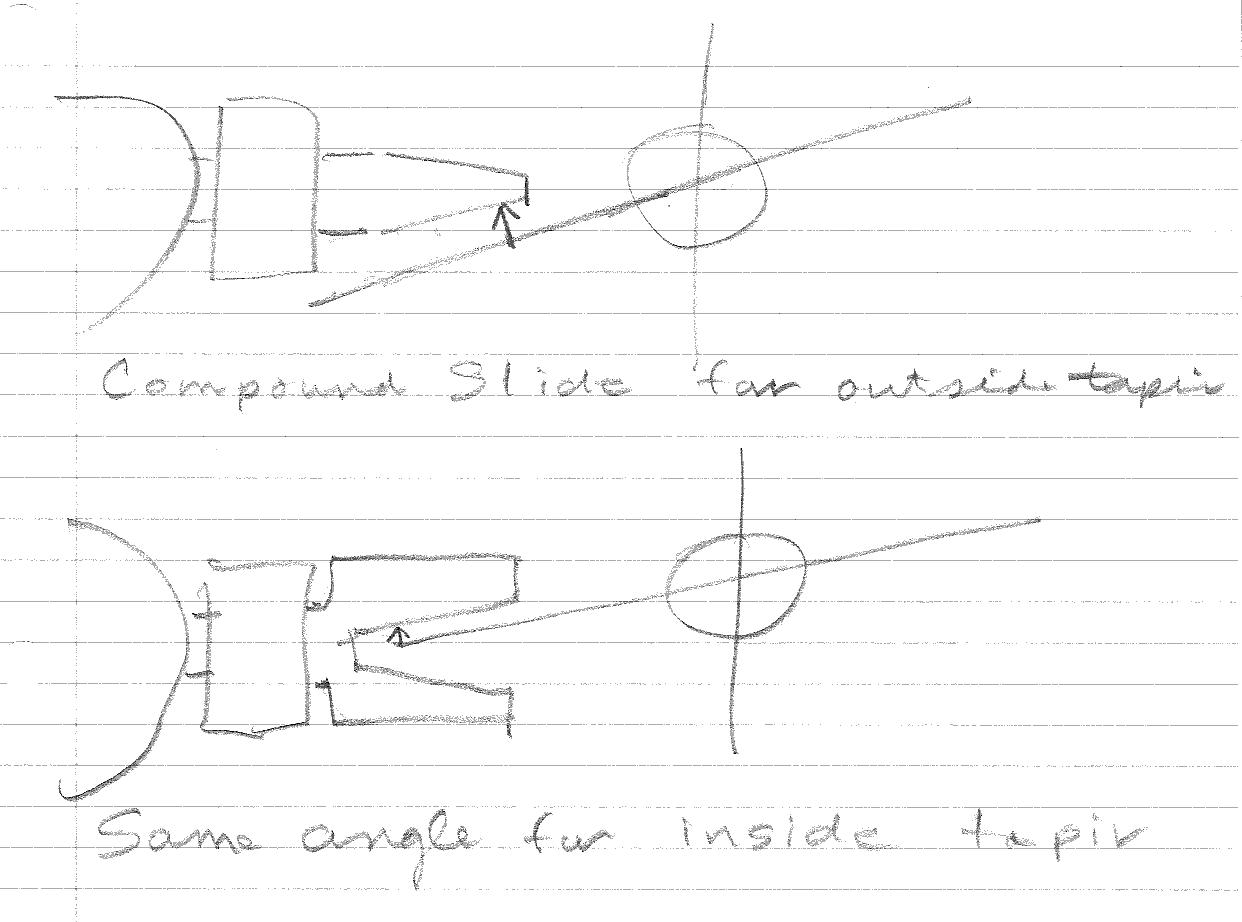 Compound Slide for outside tapir
Same angle for inside tapir